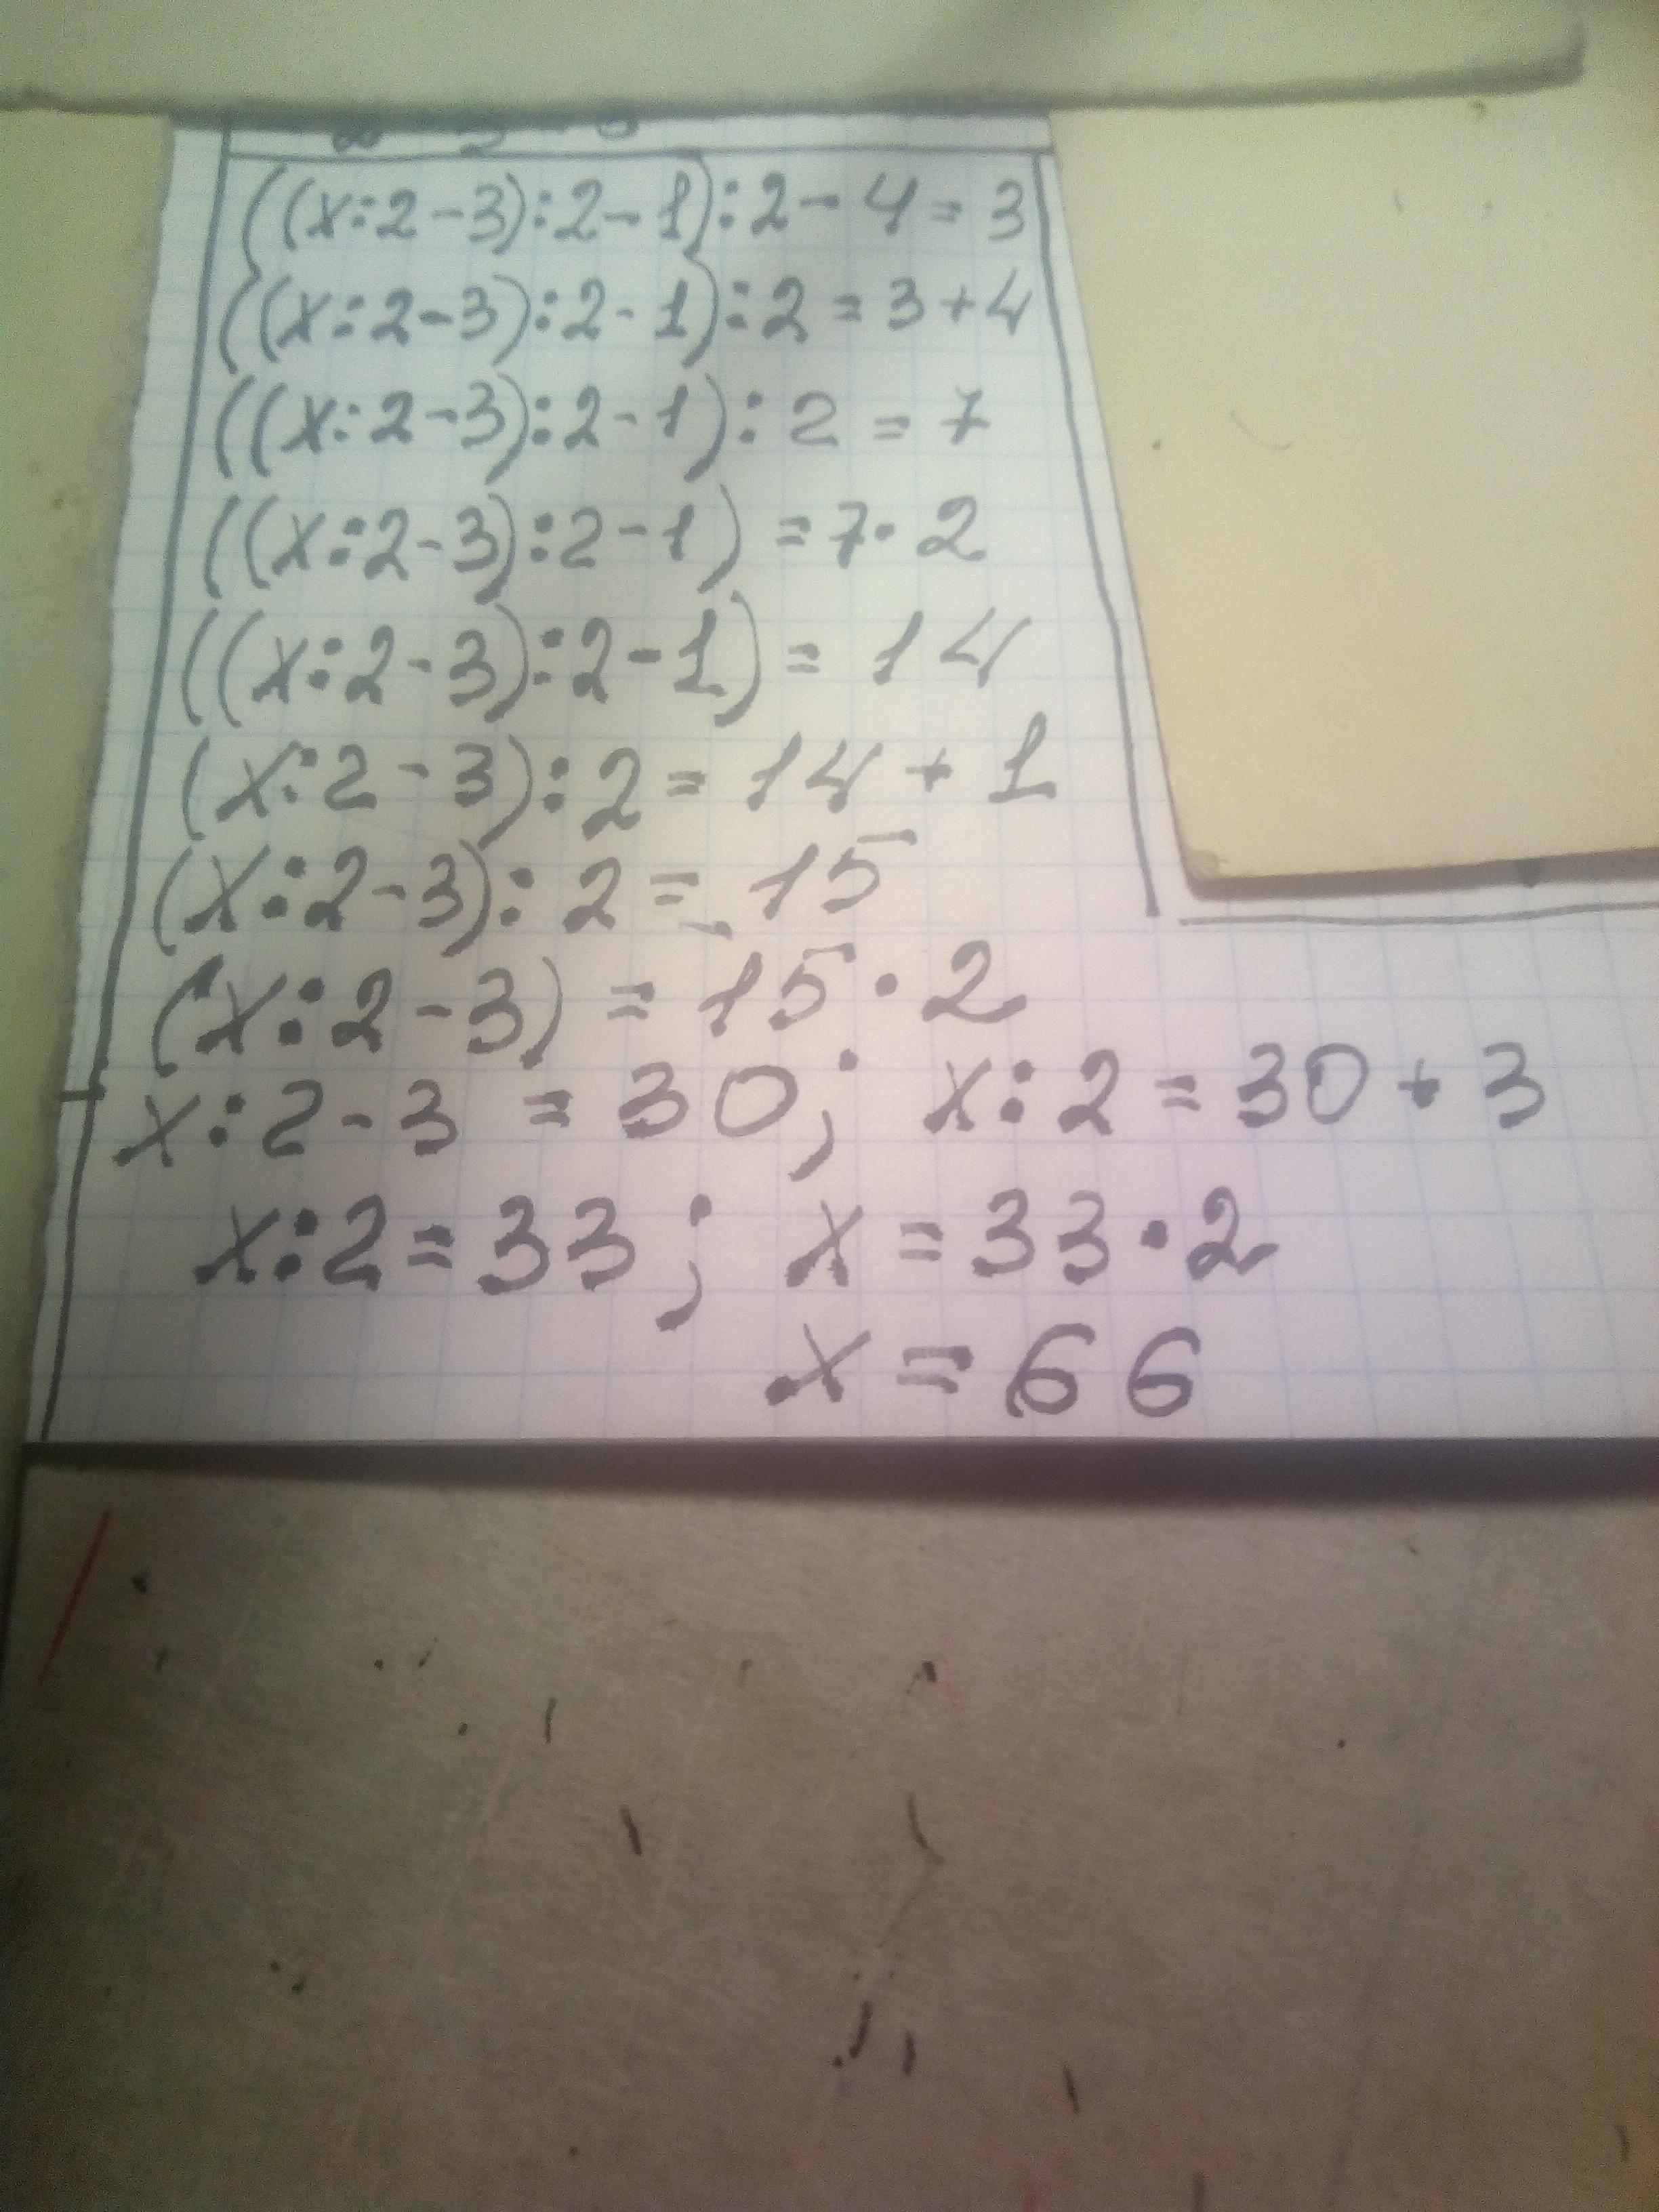 ((x:2-3):2-1):2-4=3
((x:2-3):2-1):2=3+4
((x:2-3):2-1):2=7
((x:2-3):2-1)=7·2
((x:2-3):2-1)=14
(x:2-3):2=14+1
(x:2-3):2=15
(x:2-3)=15·2
x:2-3=30; x:2=30+3
x:2=33; x=33·2
x=66